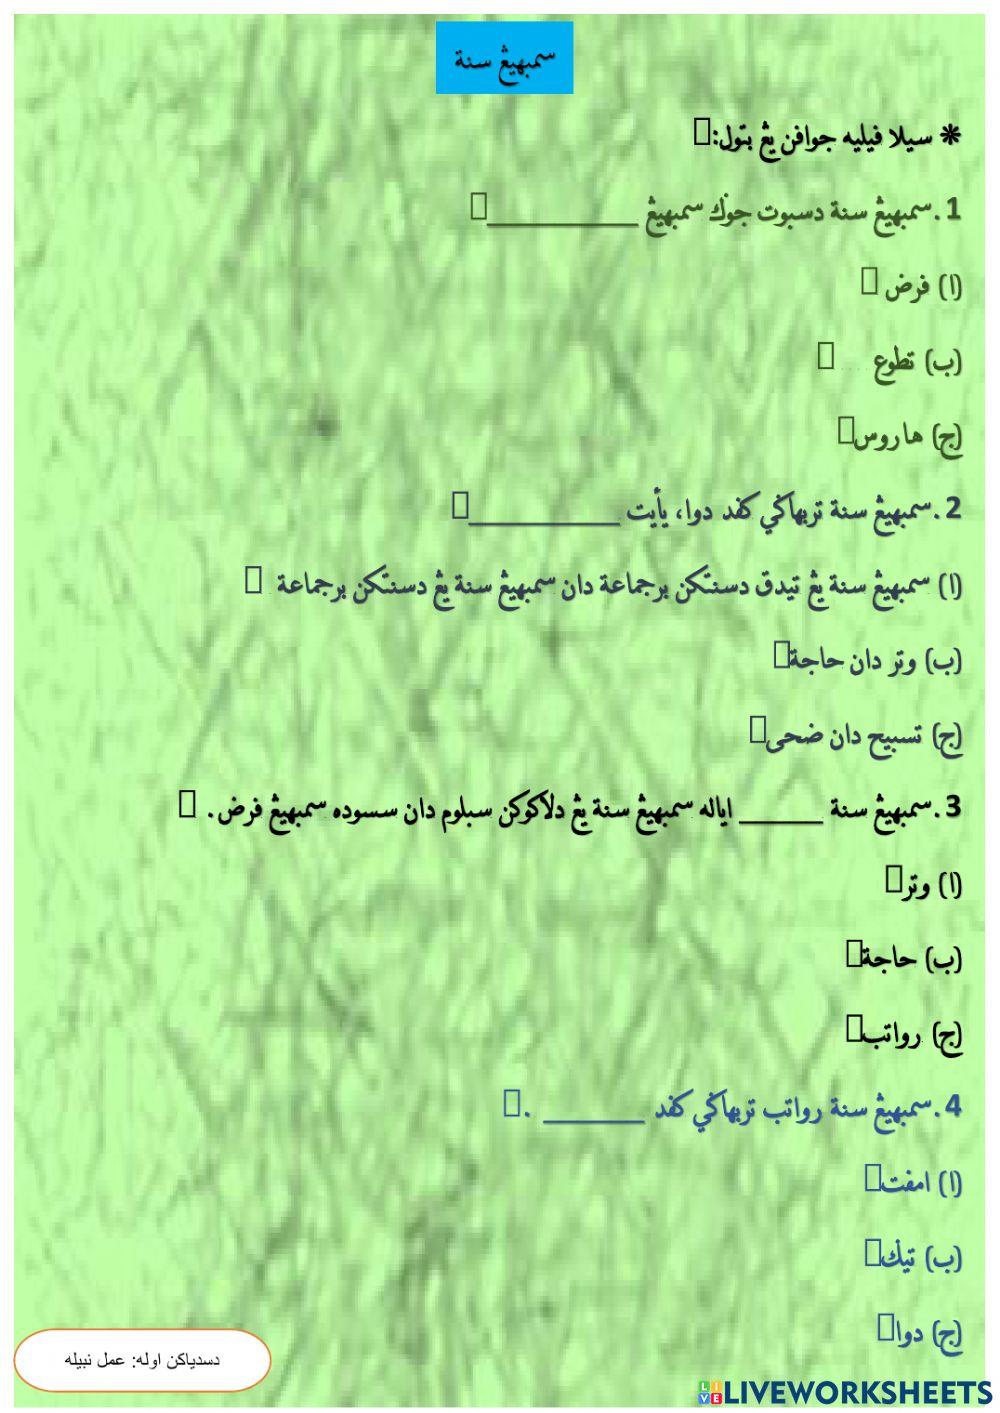 سمبهيڠ سنة
* سيلا ڤيليه جواڤن يڠ بتول:
1. سمبهيڠ سنة دسبوت جوݢ سمبهيڠ ___________
(ا) فرض
(ب) تطوع
(ج) هاروس
2. سمبهيڠ سنة تربهاݢي كڤد دوا، يأيت ___________
(ا) سمبهيڠ سنة يڠ تيدق دسنتكن برجماعة دان سمبهيڠ سنة يڠ دسنتكن برجماعة
(ب) وتر دان حاجة
(ج) تسبيح دان ضحى
3. سمبهيڠ سنة ______ اياله سمبهيڠ سنة يڠ دلاكوكن سبلوم دان سسوده سمبهيڠ فرض.
(ا) وتر
(ب) حاجة
(ج) رواتب
4. سمبهيڠ سنة رواتب تربهاݢي كڤد _______ .
(ا) امڤت
(ب) تيݢ
(ج) دوا
دسدياكن اوله: عمل نبيله
LIVEWORKSHEETS